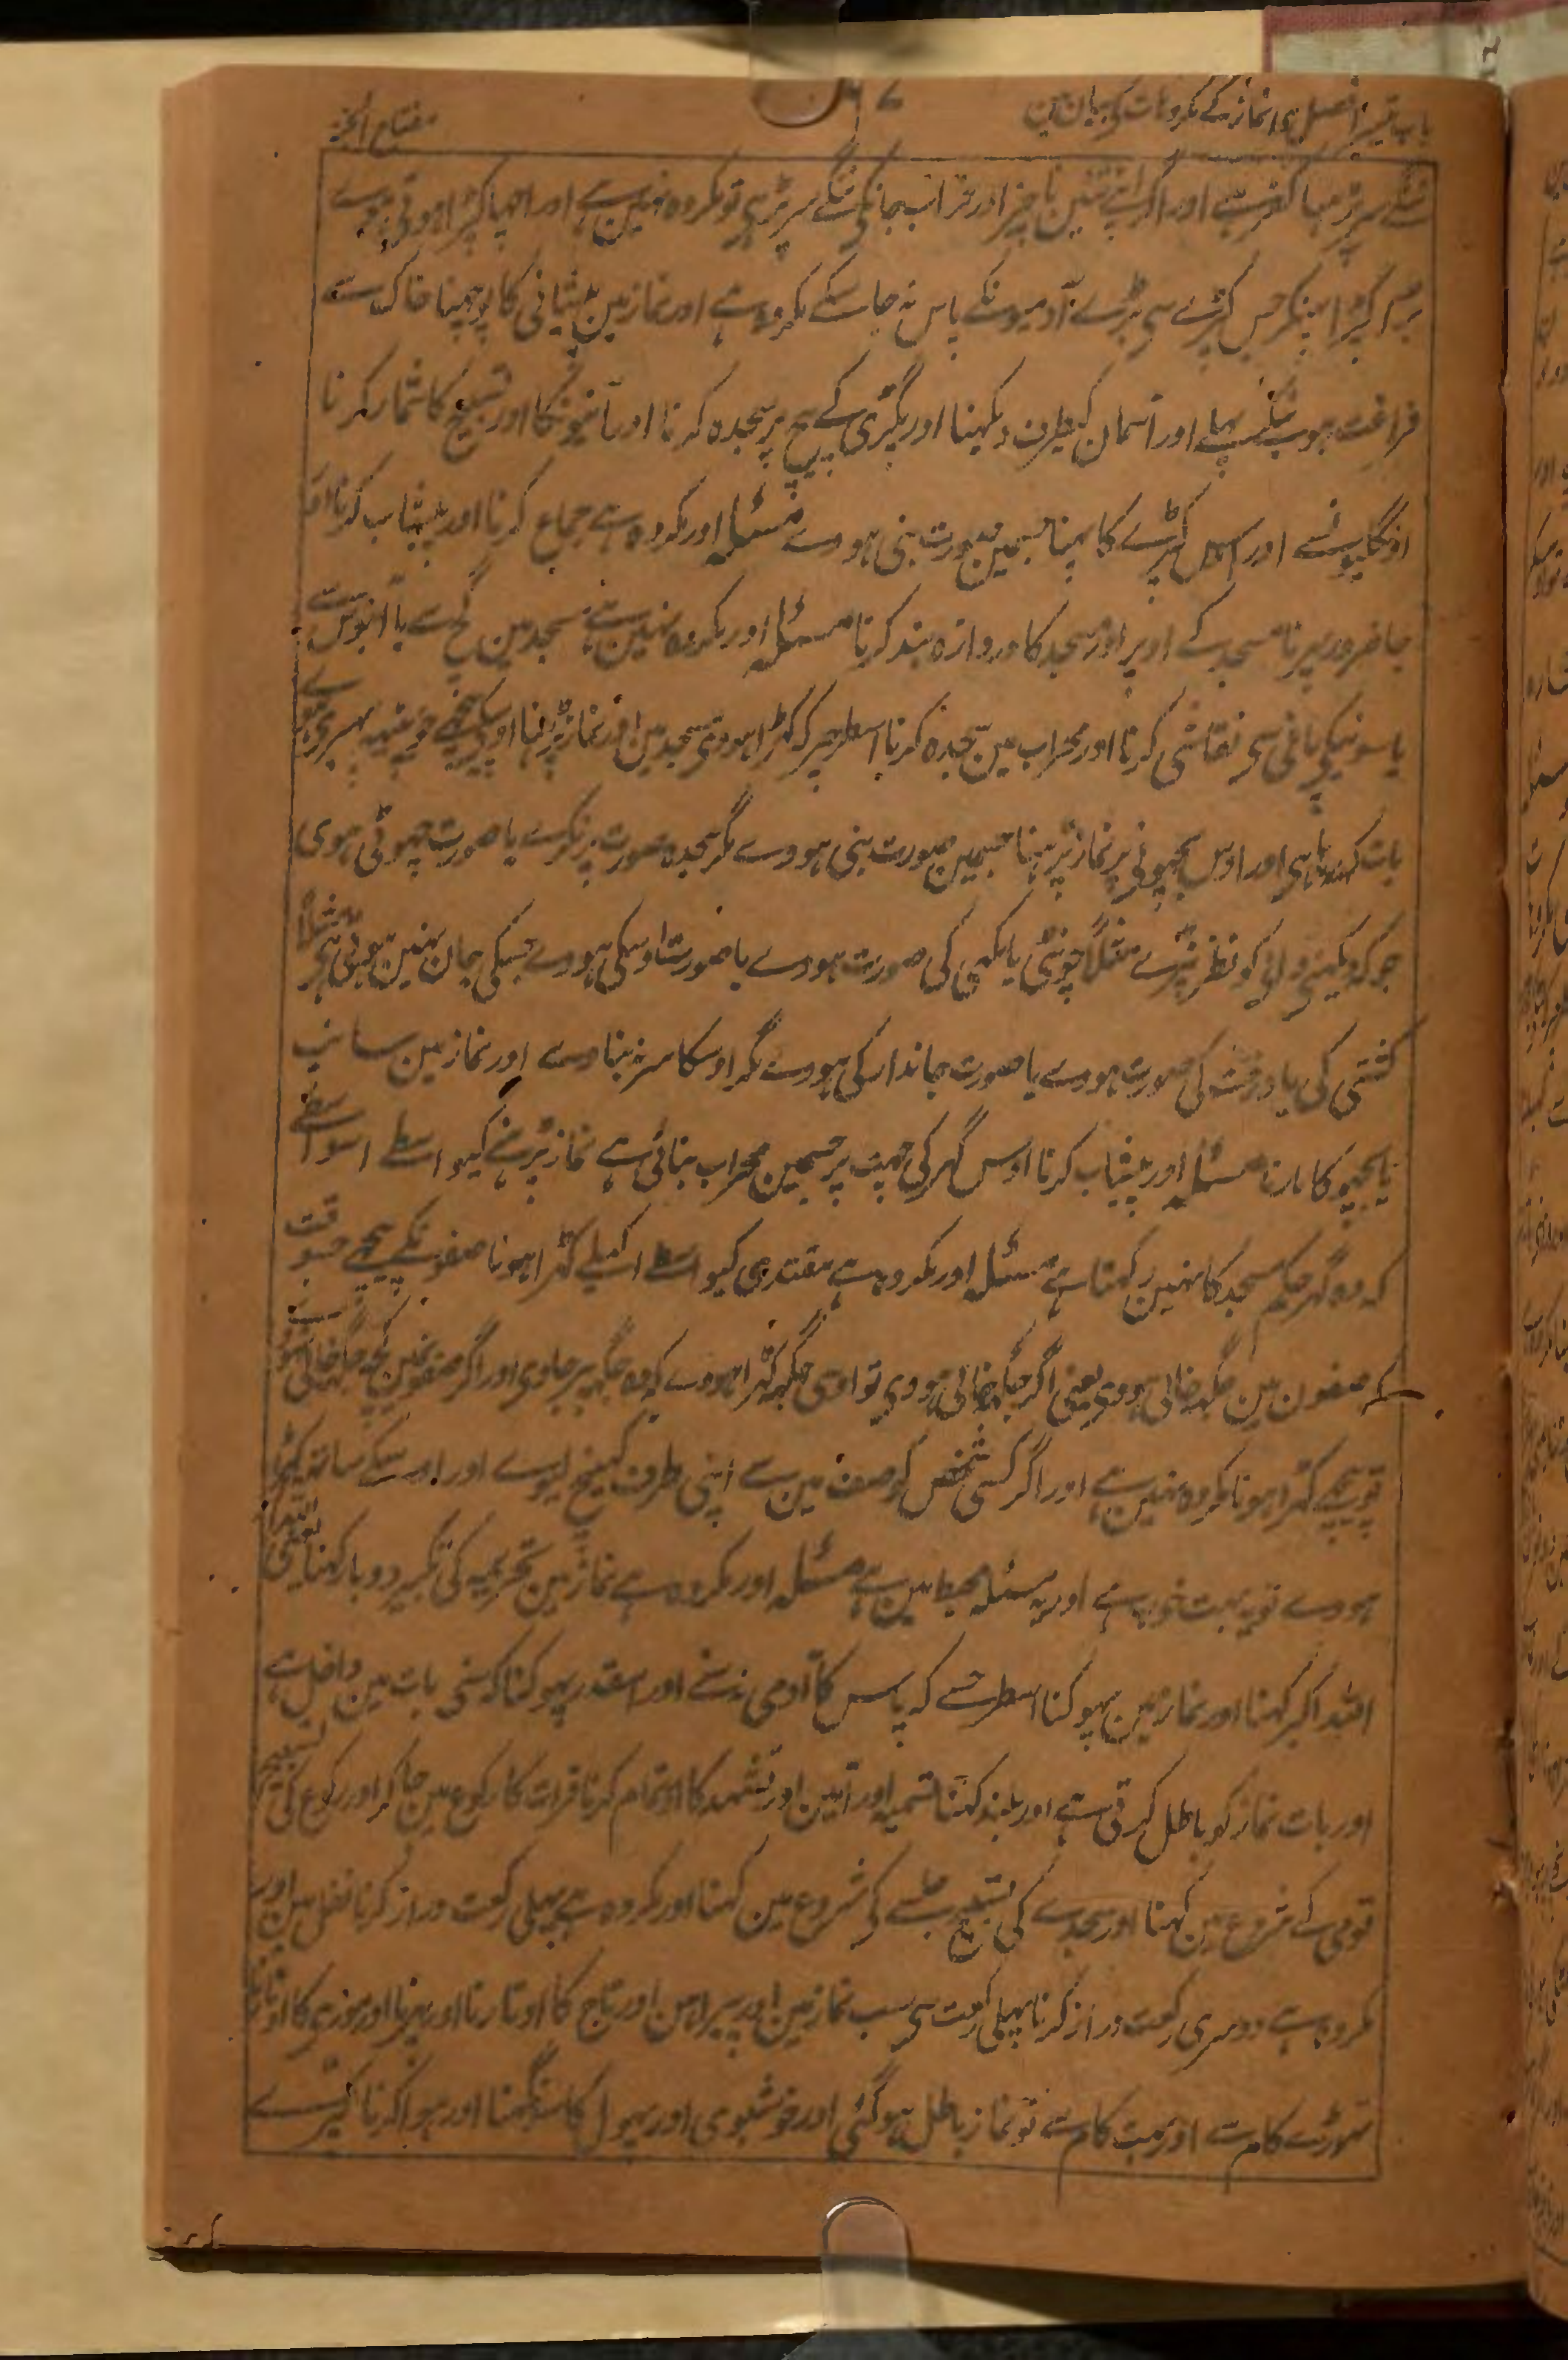 مفتاح الجنۃ
ننگے سر پڑہنا کفر ہے اور اگر اپنے تئین ناچیز اور خراب جانکی ننگے سر پڑہی تو مکروہ نہین ہے اور اچہا کپڑا ہوتی ہوے
کپڑا پہنکر جس کپڑے سی بڑے آدمیونکے پاس نہ جا سکے مکروہ ہے اور نماز مین پیشانی کا پوچہنا خاک سے
فراغت اور آسمان کیطرف دیکہنا اور پگڑی کے پیچ پر سجدہ کرنا اور آیتونکا اور تسبیح کا شمار کرنا
اونگلیونسے اور اس کپڑے کا پہننا جسمین صورت بنی ہووے مسئلہ اور مکروہ ہے جماع کرنا اور پیشاب کرنا اور
جاضرور پہرنا مسجد کے اوپر اور مسجد کا دروازہ بند کرنا مسئلہ اور مکروہ نہین ہے مسجد مین گچ سے یا آبنوس سے
یا سونیکی پانی سی نقاشی کرنا اور محراب مین سجدہ کرنا اسطرحپر کہ کہڑا ہووی مسجد مین اور نماز پڑہنا اوسکی پیچہے جو
بات کہہ رہا ہی اور اوس بچہونی پر نماز پڑہنا جسمین صورت بنی ہووے مگر سجدہ صورت پر نکرے یا صورت چہوٹی ہوی
جو کہ دیکہنی والی کو نظر نپڑے مثلاً چونٹی یا مکہی کی صورت ہووے یا صورت اوسکی ہووے جسکی جان نہین ہوتی ہی مثلاً
کشتی کی یا درخت کی صورت ہووے یا صورت جاندار کی ہووے مگر اوسکا سر نہ بناوے اور نماز مین سانپ
یا بچہو کا مارنا مسئلہ اور پیشاب کرنا اوس گہر کی چہت پر جسمین محراب بنائی ہے نماز پڑہنے کیواسطے اسواسطے
کہ وہ گہر حکم مسجد کا نہین رکہتا ہے مسئلہ اور مکروہ ہے مقتدی کیواسطے اکیلے کہڑا ہونا صفونکے پیچہے جسوقت
کہ صفون مین جگہہ خالی ہووی یعنی اگر جگہہ خالی ہووی تو اوسی جگہہ کہڑا ہووے کہ وہ جگہہ بہر جاوی اور اگر صفونمین کچہہ جگہ خالی نہو
تو پیچہے کہڑا ہونا مکروہ نہین ہے اور اگر کسی شخص کو صف مین سے اپنی طرف کہینچ لیوے اور اوسکے ساتہہ کہڑا
ہووے تو یہ بہت خوب ہے اور یہ مسئلہ محیط مین ہے مسئلہ اور مکروہ ہے نماز مین تحریمہ کی تکبیر دوبار کہنا یعنی
اللہ اکبر کہنا اور نماز مین پہوکنا اسطرحسے کہ پاس کا آدمی نہ سنے اور اسقدر پہوکنا کہ سنی بات مین داخل ہے
اور بات نماز کو باطل کرتی ہے اور بلند کہنا تسمیہ اور آمین اور تشہد کا اور تمام کرنا قرات کا رکوع مین جاکر اور رکوع کی تسبیح
قومی کے شروع مین کہنا اور سجدے کی تسبیح جلسے کی شروع مین کہنا اور مکروہ ہے پہلی رکعت دراز کرنا نفل مین اور
مکروہ ہے دوسری رکعت دراز کرنا پہلی رکعت سی سب نماز مین اور پیراہن اور تاج کا اوتارنا اور پہرنا اور موزی کا اوتارنا
تہوڑے کام سے اور بہت کام سے تو نماز باطل ہوگئی اور خوشبوی اور پہول کا سونگہنا اور ہوا کرنا کپڑے